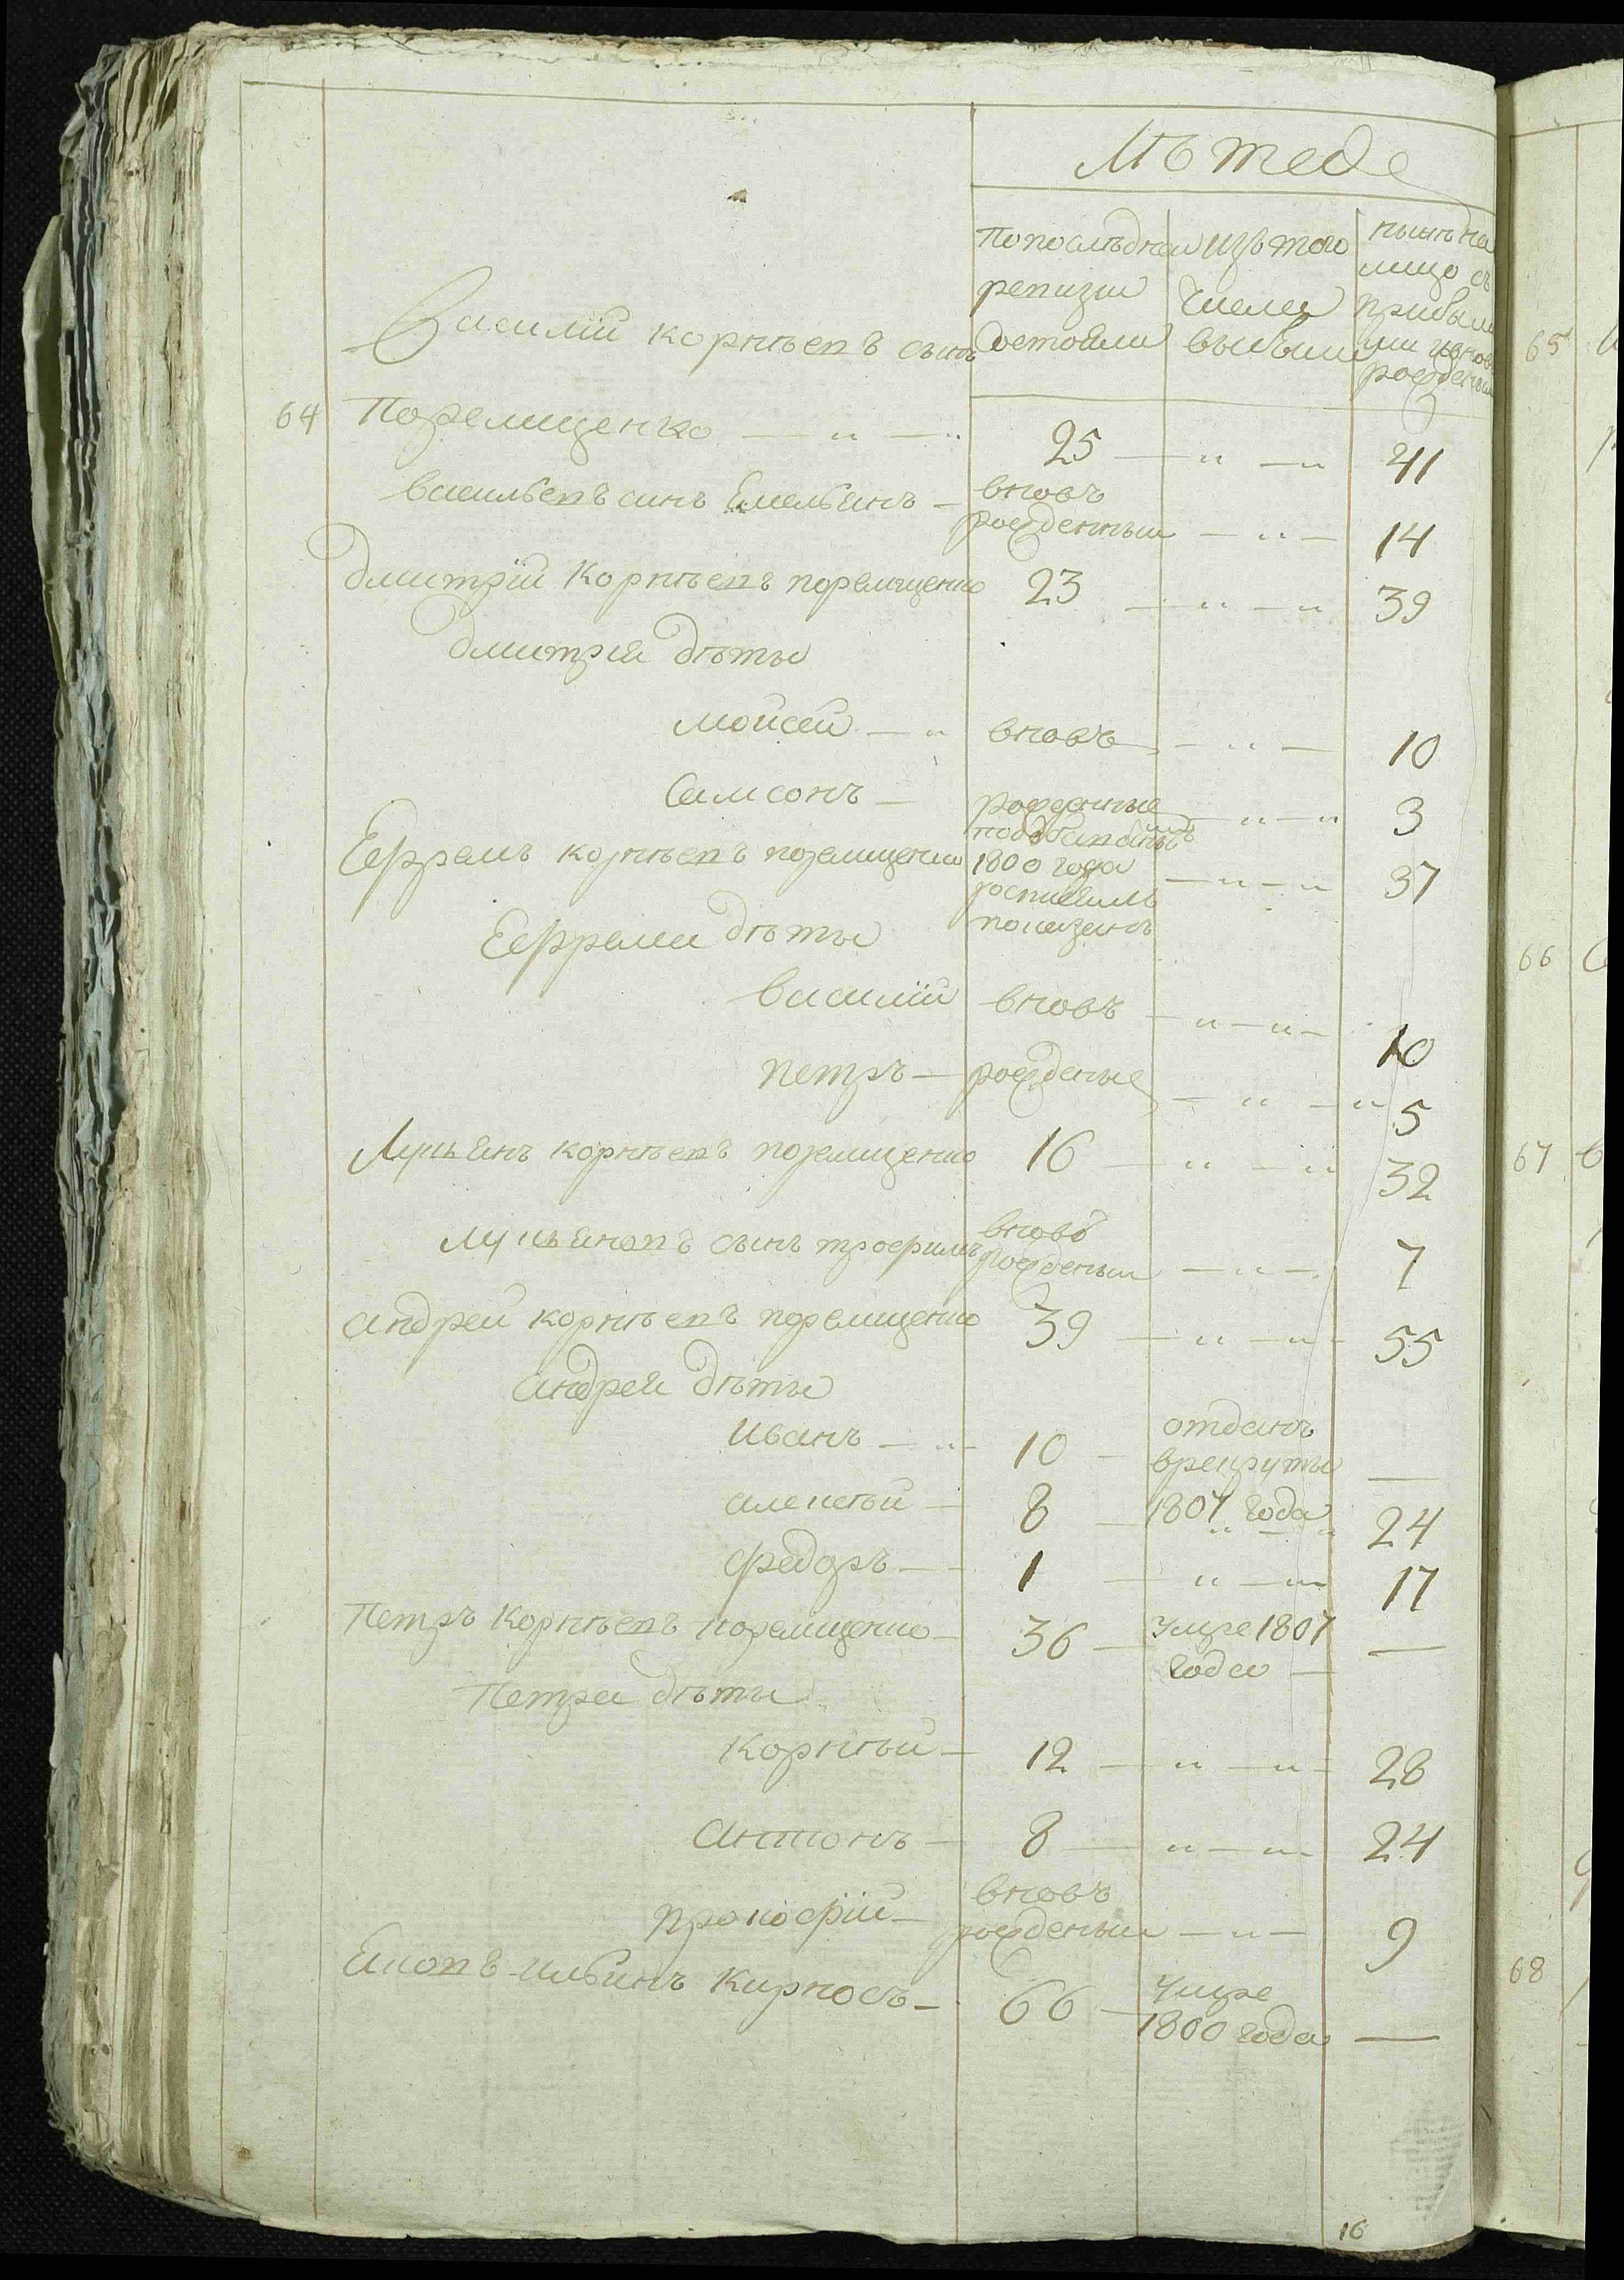 Лѣта
По последней
ревизіи
Состояли
изъ того
Числа
выбыли
нынѣ на
лицо съ
прибыли
ми и внов
рожденыи
Василій корнѣевъ сынъ
64 Поремищенко — " — " 25 — " — " 41
васильевъ синъ Емельянъ — вновъ
рожденный — " — 14
Дмитрій Корнѣевъ поремищенко 23 — " — " 39
дмитрія дѣты
Моисей — " вновъ — " — 10
Самсонъ — рожденные — " — " 3
Ефремъ корнѣевъ поремищенко 1800 года — " — " 37
показанъ
Ефрема дѣты
василій вновъ — " — " — 10
петръ — рожденые — " — " 5
Лукьянъ корнѣевъ поремищенко 16 — " — " 32
лукьяновъ сынъ трофимъ вновъ
рожденыи — " — 7
андрей корнѣевъ поремищенко 39 — " — " — 55
андрея дѣты
Иванъ — " — 10 — отданъ
врекруты —
1807 года
алексѣй — 8 — " — " 24
федоръ — 1 — " — " 17
Петръ Корнѣевъ поремищенко — 36 — Умре 1807
года — —
Петра дѣты
корнѣй — 12 — " — " — 28
антонъ — 8 — " — " 24
прокофій — вновъ
рожденыи — " — 9
Яковъ ильинъ Кирносъ — 66 — Умре
1800 года —
16
65
66
67
68